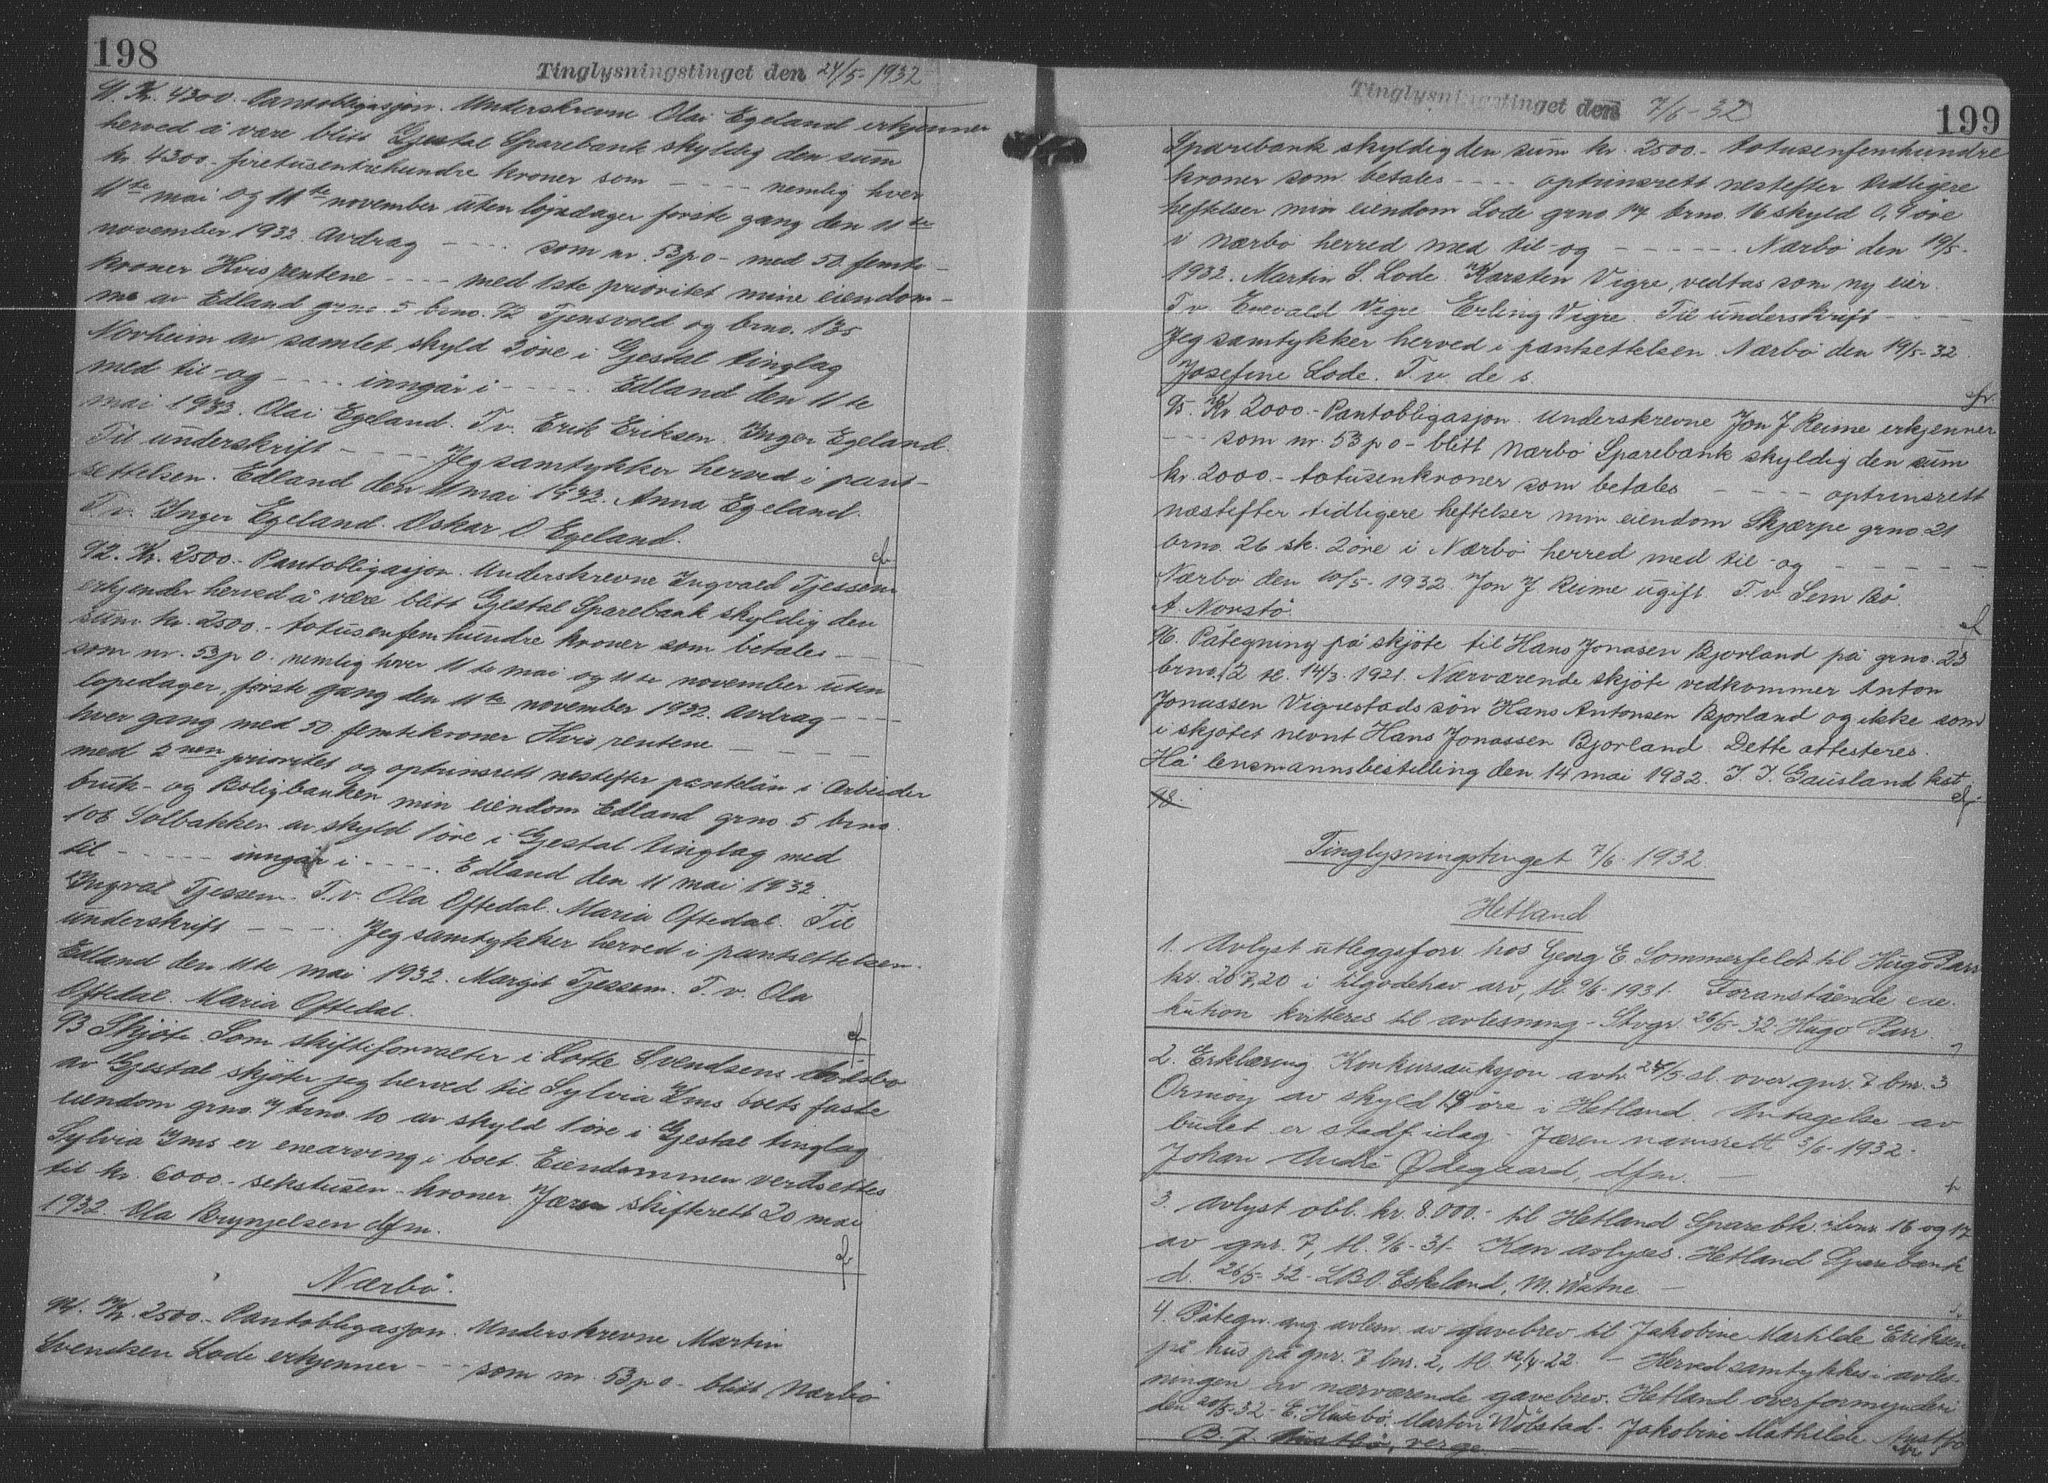 198
Tinglysningstinget den 24/5-1932
91. Kr. 4300.- Pantobligasjon. Underskrevne Olai Egeland erkjenner
herved å være blitt Gjestal Sparebank skyldig den sum
kr. 4300.- firetusentrehundre kroner som - - - - nemlig hver
11te mai og 11te november uten løpedager første gang den 11te
november 1932. Avdrag - - - - som nr. 53 p 0 - med 50 femti-
kroner Hvis rentene - - - - med 1ste prioritet mine eiendom-
me av Edland grno. 5 brno. 92 Tjensvold og brno. 135
Norheim av samlet skyld 2 øre i Gjestal tinglag
med til og - - - - inngår i - - - - Edland den 11te
mai 1932. Olai Egeland. T.v. Erik Eriksen. Inger Egeland.
Til underskrift - - - - Jeg samtykker herved i pant-
settelsen. Edland den 11 mai 1932. Anna Egeland.
T.v. Inger Egeland. Oskar O Egeland.
92. Kr. 2500.- Pantobligasjon. Underskrevne Ingvald Tjessem
erkjender herved å være blitt Gjestal Sparebank skyldig den
sum kr. 2500.- totusenfemhundre kroner som betales - -
som nr. 53 p 0. nemlig hver 11te mai og 11te november uten
løpedager, første gang den 11te november 1932. Avdrag - - - -
hver gang med 50 femtikroner Hvis rentene - - - -
med 2nen prioritet og optrinsrett nestefter pantelån i Arbeider
bruk- og Boligbanken min eiendom Edland grno. 5 brno.
106 Solbakken av skyld 1 øre i Gjestal tinglag med
til - - - - - inngår i - - - - . Edland den 11 mai 1932
Ingval Tjessem. T.v. Ola Oftedal. Maria Oftedal. Til
underskrift - - - - Jeg samtykker herved i pantsettelsen.
Edland den 11te mai 1932. Margit Tjessem. T.v. Ola
Oftedal. Maria Oftedal.
93 Skjøte. Som skifteforvalter i Lotte Svendsens dødsbo
av Gjestal skjøter jeg herved til Sylvia Ims boets faste
eiendom grno. 7 brno. 10 av skyld 1 øre i Gjestal tinglag
Sylvia Ims er enearving i boet. Eiendommen verdsettes
til kr. 6000.- sekstusen-kroner. Jæren skifterett 20 mai
1932. Ola Brynjelsen dfm.
Nærbø.
94. Kr. 2500.- Pantobligasjon. Underskrevne Martin
Svendsen Lode erkjenner - - - som nr. 53 p 0 - blitt Nærbø
Tinglysningstinget den 7/6-32
199
Sparebank skyldig den sum kr. 2500.- totusenfemhundre
kroner som betales - - - - optrinsrett nestefter tidligere
heftelser min eiendom Lode grno. 17 brno. 16 skyld 0,9 øre
i Nærbø herred med til og - - - - - Nærbø den 19/5-
1932. Martin S. Lode. Karsten Vigre vedtas som ny eier.
T.v. Enevald Vigre Erling Vigre. Til underskrift - - - -
Jeg samtykker herved i pantsettelsen. Nærbø den 19/5-32
Josefine Lode. T.v. de s.
95. Kr 2000.- Pantobligasjon. Underskrevne Jon J Reime erkjenner
- - - som nr. 53 p 0 - blitt Nærbø Sparebank skyldig den sum
kr. 2000.- totusenkroner som betales - - - - optrinsrett
næstefter tidligere heftelser min eiendom Skjærpe grno. 21
brno. 26 sk. 2 øre i Nærbø herred med til og - - - - - -
Nærbø den 10/5-1932. Jon J Reime ugift. T.v. Sem Bø.
A. Norstø.
96. Påtegning på skjøte til Hans Jonasen Bjorland på grno. 23
brno. 12 tl. 14/3-1921. Nærværende skjøte vedkommer Anton
Jonassen Vigrestads søn Hans Antonsen Bjorland og ikke som
i skjøtet nevnt Hans Jonassen Bjorland. Dette attesteres.
Hå lensmannsbestilling den 14 mai 1932. J. J. Gausland kst
Tinglysningstinget 7/6-1932.
Hetland
1. Avlyst utleggsforr. hos Georg E. Sommerfeldt til Hugo Parr
kr. 207,20 i tilgodehav. arv, tl. 9/6-1931. Foranstående exe-
kution kvitteres til avlesning - Stvgr. 26/5-32. Hugo Parr.
2. Erklæring Konkursauksjon avh. 24/5 sl. over gnr. 7 bnr. 3
Ormøy av skyld 19 øre i Hetland. Antagelse av
budet er stadf. idag. Jæren namsrett 3/6-1932.
Johan André Ødegaard, dfm.
3. Avlyst obl. kr. 8.000.- til Hetland Sparebk. i bnr. 16 og 17
av gnr. 7, tl. 9/6-31. Kan avlyses. Hetland Sparebank
d. 26/5-32. LBO. Eskeland, M. Watne.
4. Påtegn. ang. avlesn. av gavebrev til Jakobine Mathilde Eriksen
på hus på gnr. 7 bnr. 2, tl. 12/4-22 - Herved samtykkes i avles-
ningen av nærværende gavebrev. Hetland overformynderi
den 20/5-32 - E. Husebø. Martin Wølstad. Jakobine Mathilde
verge.